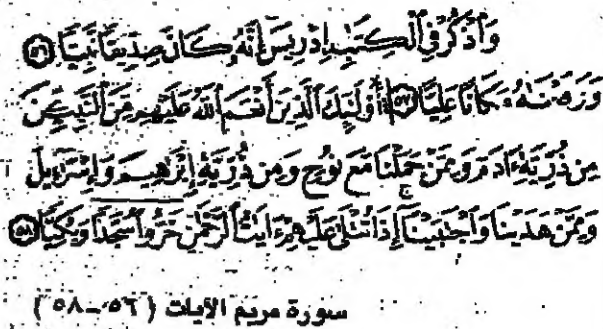 وَٱذْكُرْ فِى ٱلْكِتَٰبِ إِدْرِيسَ إِنَّهُۥ كَانَ صِدِّيقًا نَّبِيًّا ۝٥٦
وَرَفَعْنَٰهُ مَكَانًا عَلِيًّا ۝٥٧ أُو۟لَٰٓئِكَ ٱلَّذِينَ أَنْعَمَ ٱللَّهُ عَلَيْهِم مِّنَ ٱلنَّبِيِّـۧنَ
مِن ذُرِّيَّةِ ءَادَمَ وَمِمَّنْ حَمَلْنَا مَعَ نُوحٍ وَمِن ذُرِّيَّةِ إِبْرَٰهِيمَ وَإِسْرَٰٓءِيلَ
وَمِمَّنْ هَدَيْنَا وَٱجْتَبَيْنَآ ۚ إِذَا تُتْلَىٰ عَلَيْهِمْ ءَايَٰتُ ٱلرَّحْمَٰنِ خَرُّوا۟ سُجَّدًا وَبُكِيًّا ۝٥٨
سورة مريم الآيات (٥٦-٥٨)